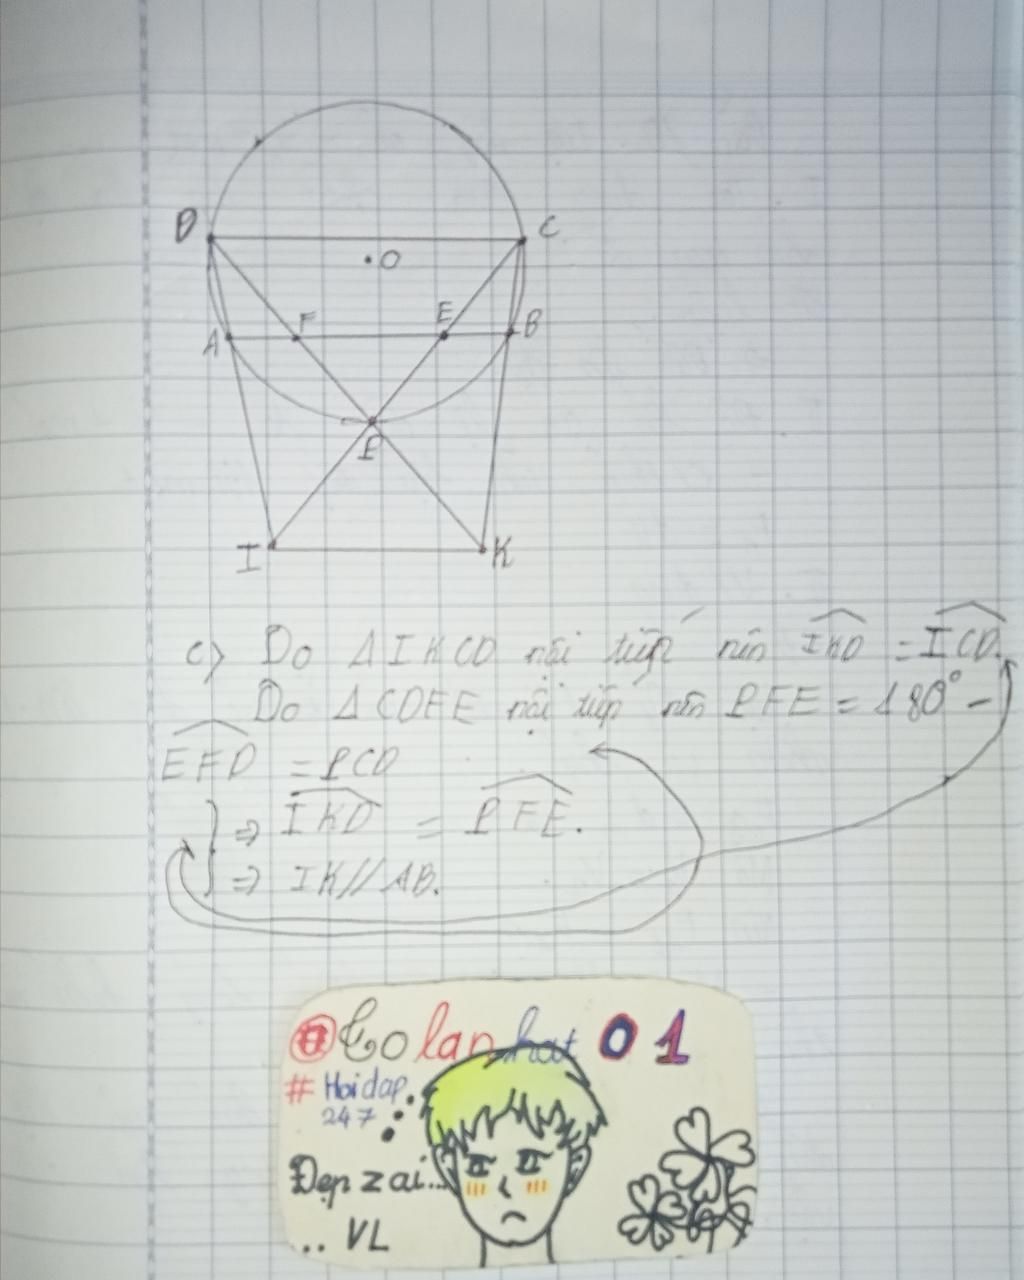 D
C
O
A
F
E
B
P
I
K
c) Do ΔIKCD nội tiếp nên IKD = ICD.
Do ΔCDFE nội tiếp nên PFE = 180° -
EFD = PCD
} ⇒ IKD = PFE.
⇒ IK // AB.
Colanhat 01
# Hoidap
247
Đẹp zai...
.. VL